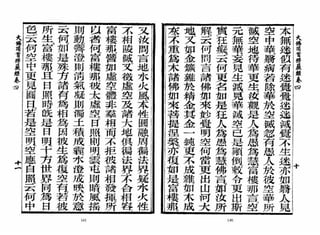 大佛頂首楞嚴經 卷四
十
本無迷似有迷覺覺迷迷滅覺不生迷亦如翳人見
空中華翳病若除華於空滅忽有愚人於彼空華所
滅空地待華更生汝觀是人為愚為慧富樓那言空
元無華妄見生滅見華滅空已是顛倒敕令更出斯
實狂癡云何更名如是狂人為愚為慧佛言如汝所
解云何問言諸佛如來妙覺明空何當更出山河大
地又如金礦雜於精金其金一純更不成雜如木成
灰不重為木諸佛如來菩提涅槃亦復如是富樓那
又汝問言地水火風本性圓融周徧法界疑水火性
不相陵滅又徵虛空及諸大地俱徧法界不合相容
富樓那譬如虛空體非羣相而不拒彼諸相發揮所
以者何富樓那彼太虛空日照則明雲屯則暗風搖
則動霽澄則清氣凝則濁土積成霾水澄成映於意
云何如是殊方諸有為相為因彼生為復空有若彼
所生富樓那且日照時既是日明十方世界同為日
色云何空中更見圓日若是空明空應自照云何中
大佛頂首楞嚴經 卷四
十一